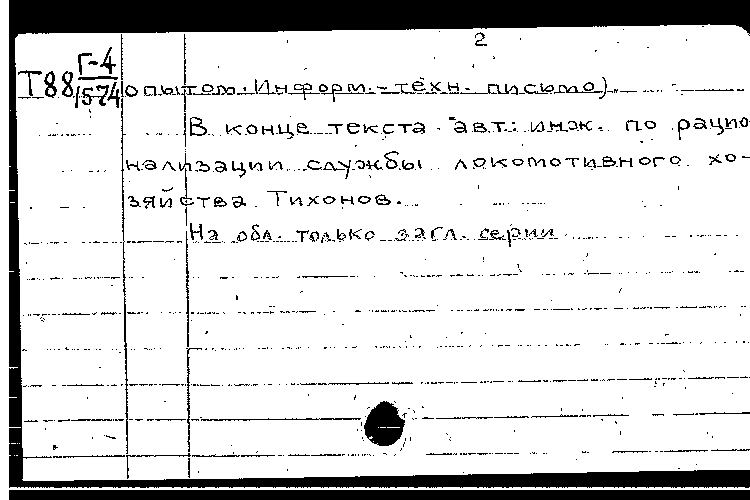 2
Т88 Г-4
1574
опытом. Информ.-техн. письмо).
В конце текста авт.: инж. по рацио-
нализации службы локомотивного хо-
зяйства Тихонов.
На обл. только загл. серии